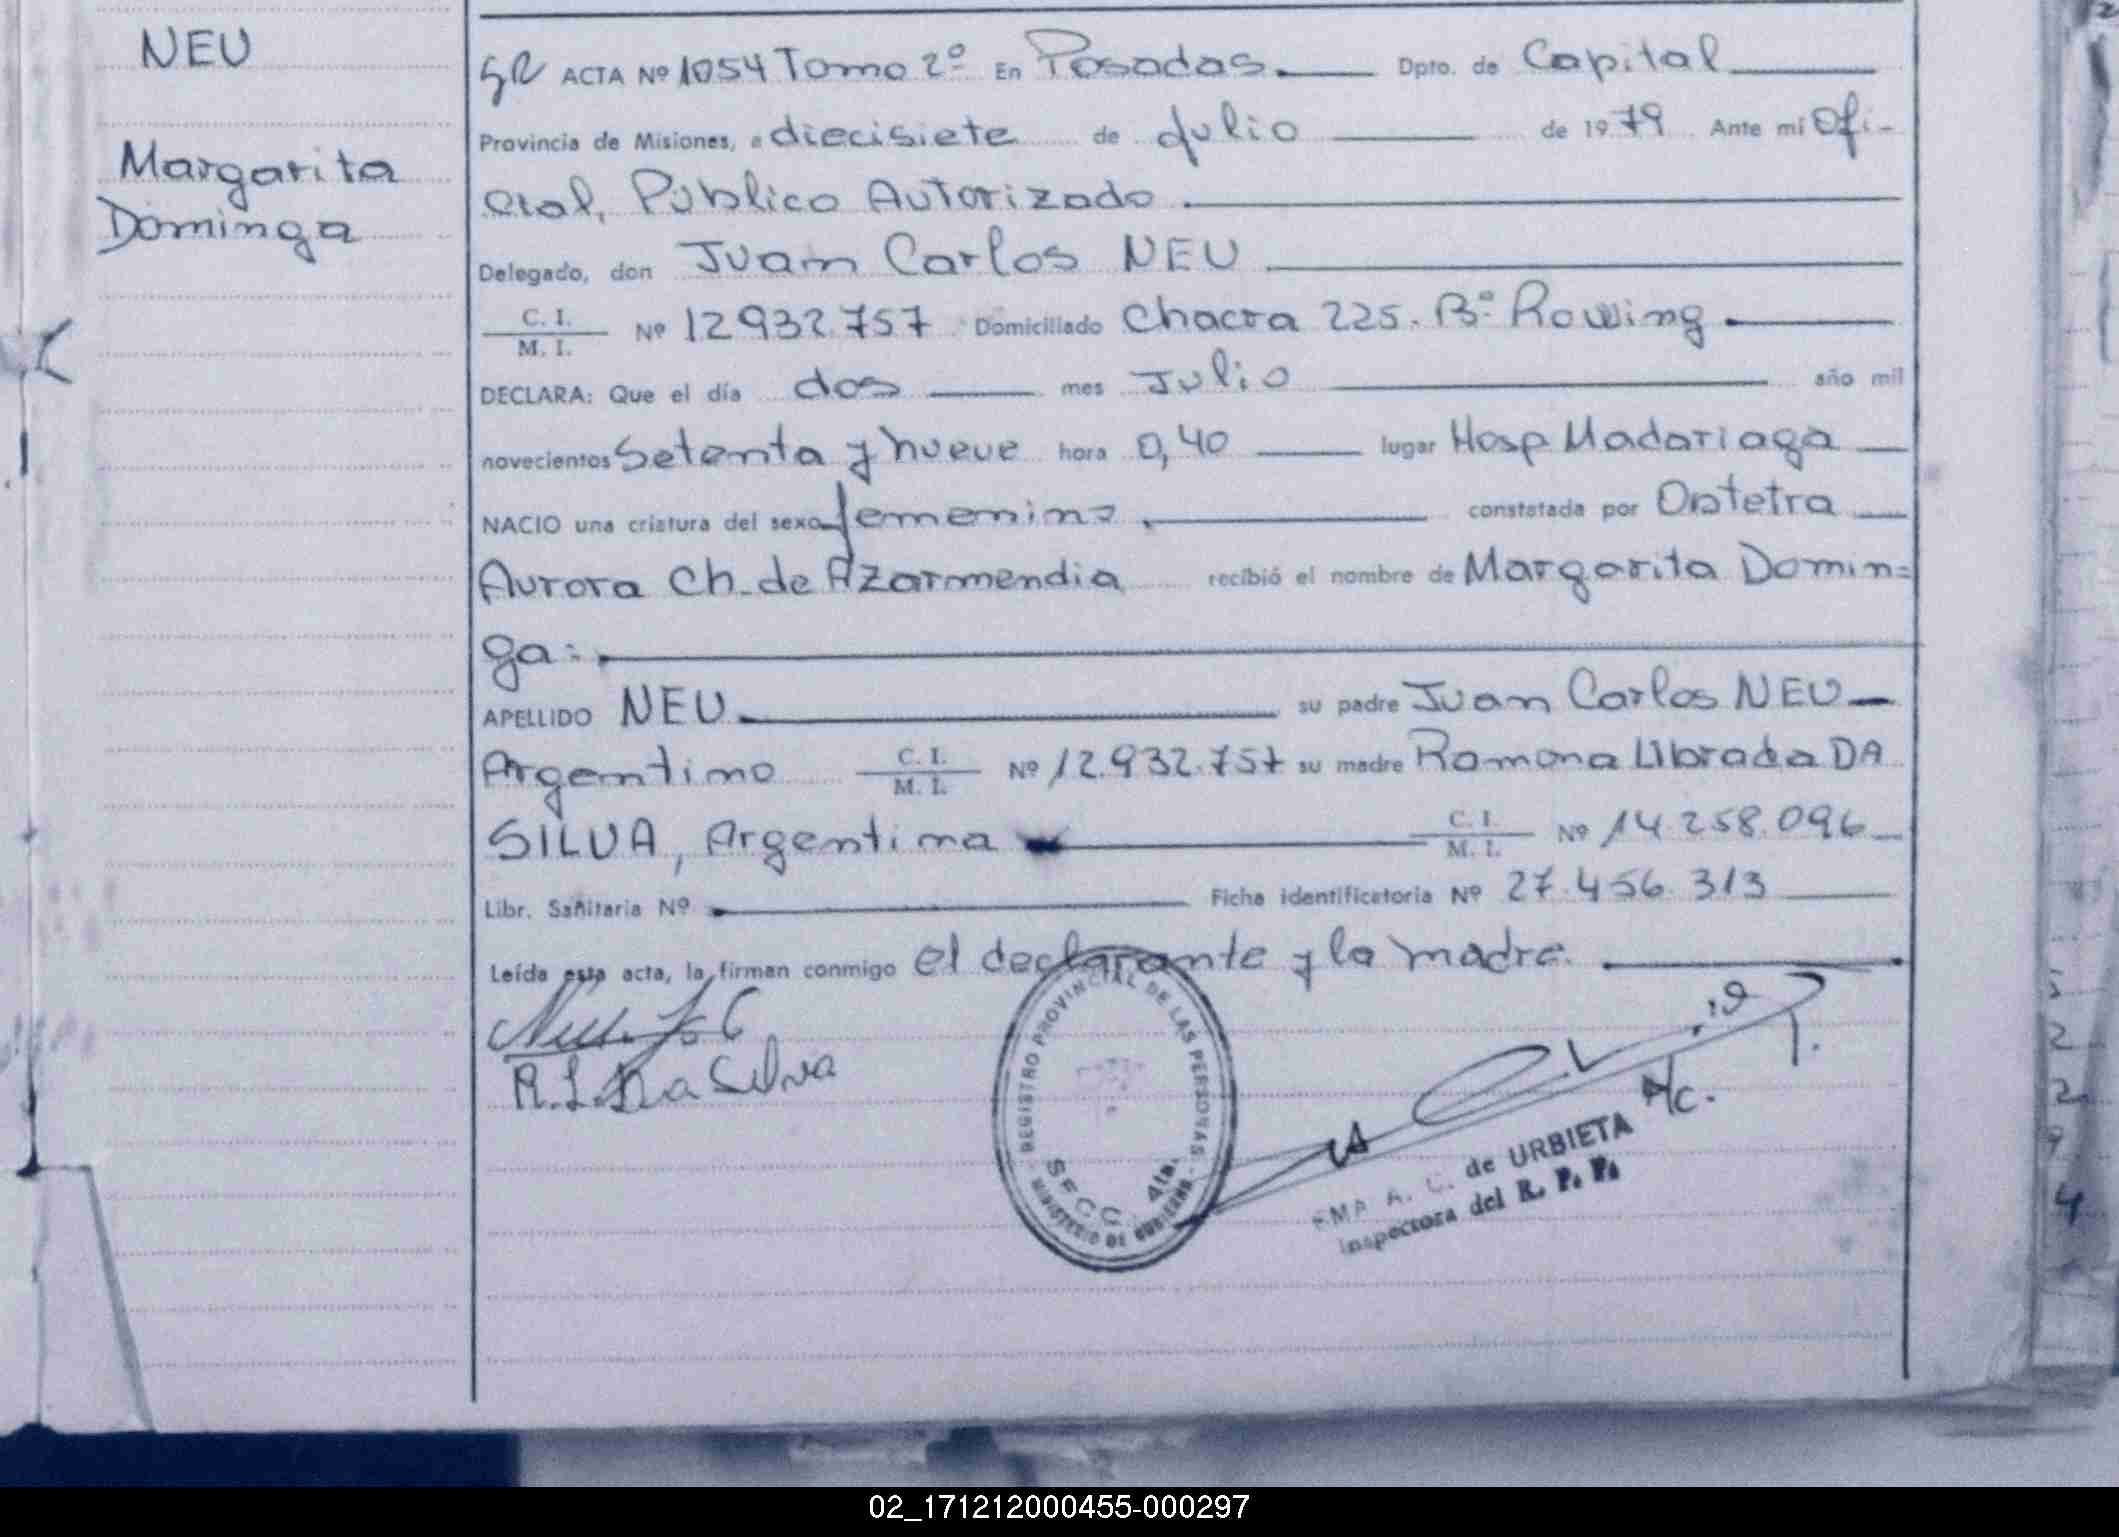 NEU
Margarita
Dominga
ACTA Nº 1054 Tomo 2º En Posadas. Dpto. de Capital
Provincia de Misiones, a diecisiete de Julio de 1979 Ante mi Ofi-
cial, Público Autorizado.
Delegado, don Juan Carlos NEU
C. I.
M. I. Nº 12.932.757 Domiciliado Chacra 225. Bº Rowing
DECLARA: Que el día dos mes Julio año mil
novecientos Setenta y nueve hora 0,40 lugar Hosp Madariaga
NACIO una criatura del sexo femenino. constatada por Obtetra
Aurora Ch. de Azarmendia recibió el nombre de Margarita Domin=
ga:
APELLIDO NEU su padre Juan Carlos NEU
Argentino C. I.
M. I. Nº 12.932.757 su madre Ramona Librada DA
SILVA, Argentina C. I.
M. I. Nº 14.258.096
Libr. Sanitaria Nº Ficha identificatoria Nº 27.456.313
Leída esta acta, la firman conmigo el declarante y la madre.
R.L. Da Silva
REGISTRO PROVINCIAL DE LAS PERSONAS
MINISTERIO DE GOBIERNO
4ta.
A/C.
A. C. de URBIETA
Inspectora del R. P. P.
02_171212000455-000297